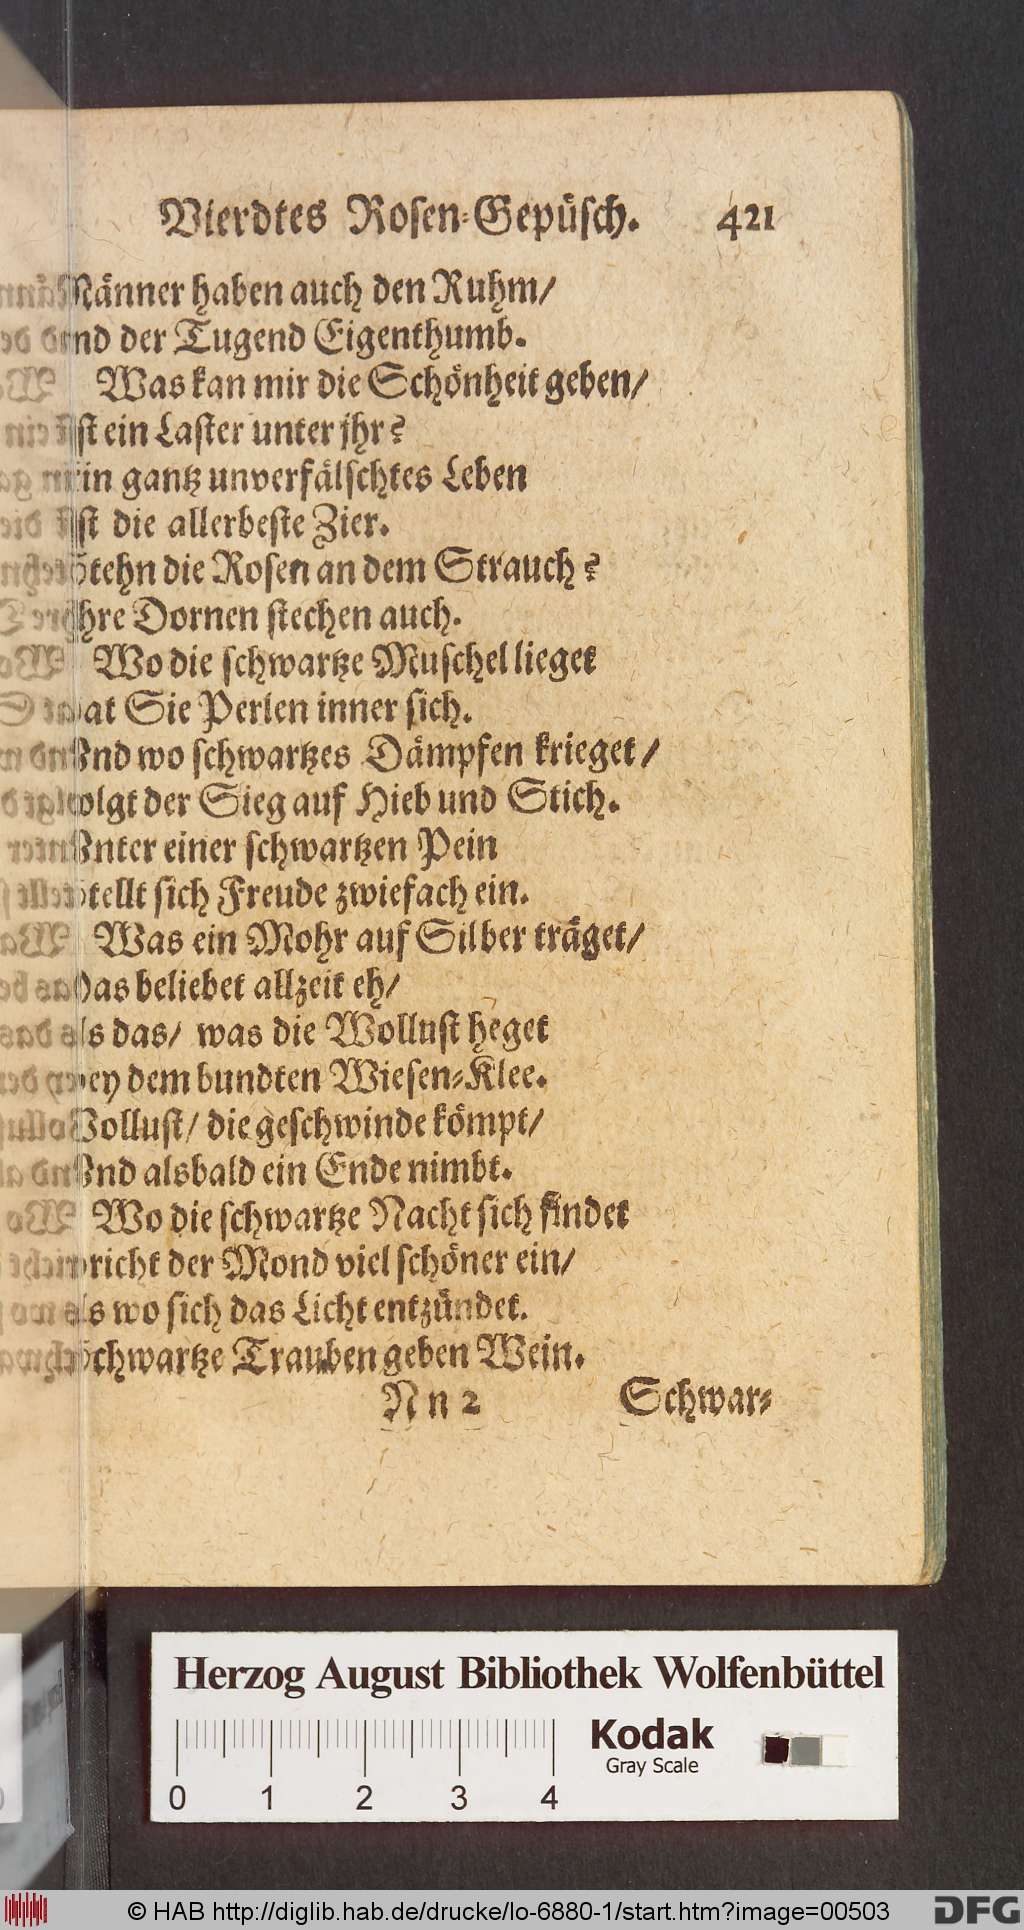 Vierdtes Rosen-Gepüsch. 421
Männer haben auch den Ruhm/
der Tugend Eigenthumb.
Was kan mir die Schönheit geben/
Ist ein Laster unter jhr?
ein gantz unverfälschtes Leben
Ist die allerbeste Zier.
Stehn die Rosen an dem Strauch?
Jhre Dornen stechen auch.
Wo die schwartze Muschel lieget
Hat Sie Perlen inner sich.
Vnd wo schwartzes Dämpfen krieget/
Folgt der Sieg auf Hieb und Stich.
Vnter einer schwartzen Pein
Stellt sich Freude zwiefach ein.
Was ein Mohr auf Silber träget/
Das beliebet allzeit eh/
Als das/ was die Wollust heget
Bey dem bundten Wiesen-Klee.
Wollust/ die geschwinde kömpt/
Vnd alsbald ein Ende nimbt.
Wo die schwartze Nacht sich findet
bricht der Mond viel schöner ein/
Als wo sich das Licht entzündet.
Schwartze Trauben geben Wein.
Nn 2 Schwar-
Herzog August Bibliothek Wolfenbüttel
Kodak
Gray Scale
0 1 2 3 4
© HAB http://diglib.hab.de/drucke/lo-6880-1/start.htm?image=00503
DFG